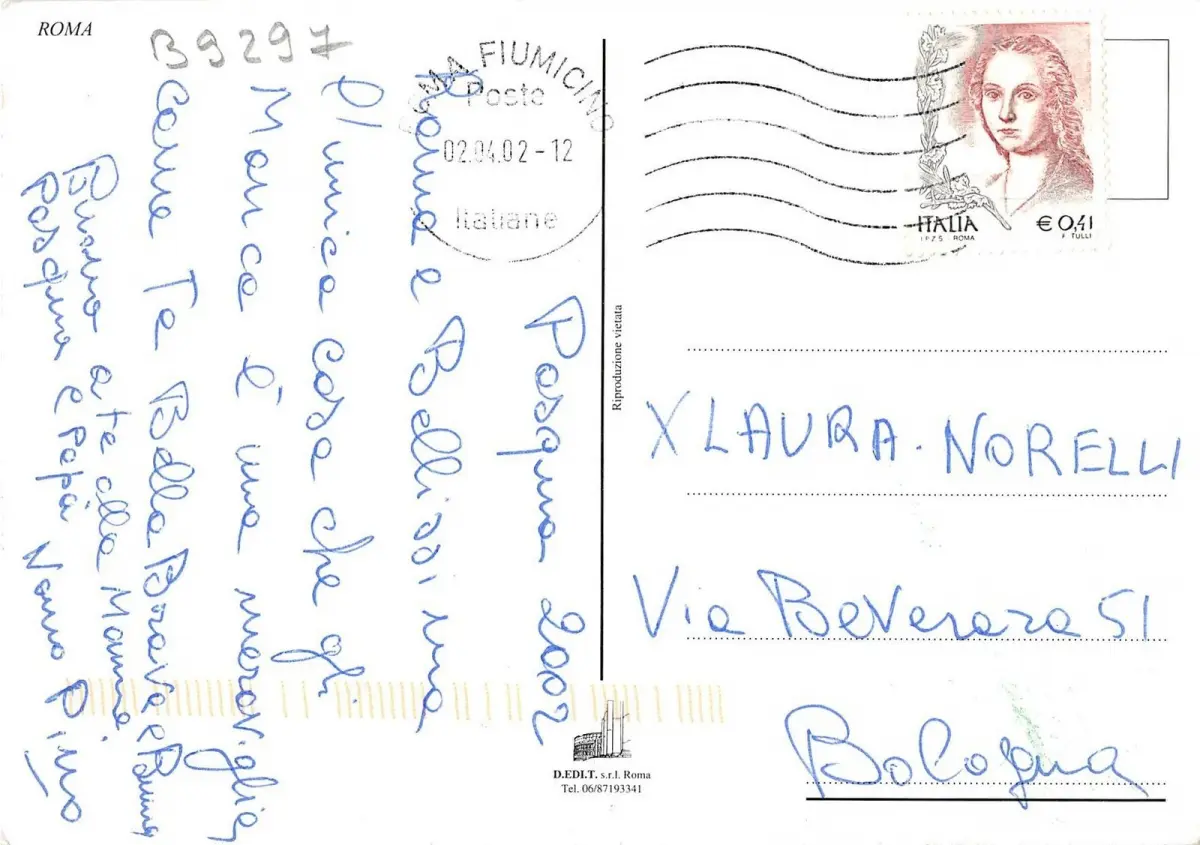 ROMA
B9297
ROMA FIUMICINO
Poste
02.04.02-12
Italiane
ITALIA
€ 0,41
I.P.Z.S. ROMA
F. TULLI
Pasqua 2002
Roma e Bellissima
l'unica cosa che gli
Manca è una meraviglia
Come Te Bella Brava e
Buona a te alla Mamma
Pasqua e Papà Nonno Pino
Riproduzione vietata
X LAURA. NORELLI
Via BeVerara 51
Bologna
D.EDI.T. s.r.l. Roma
Tel. 06/87193341